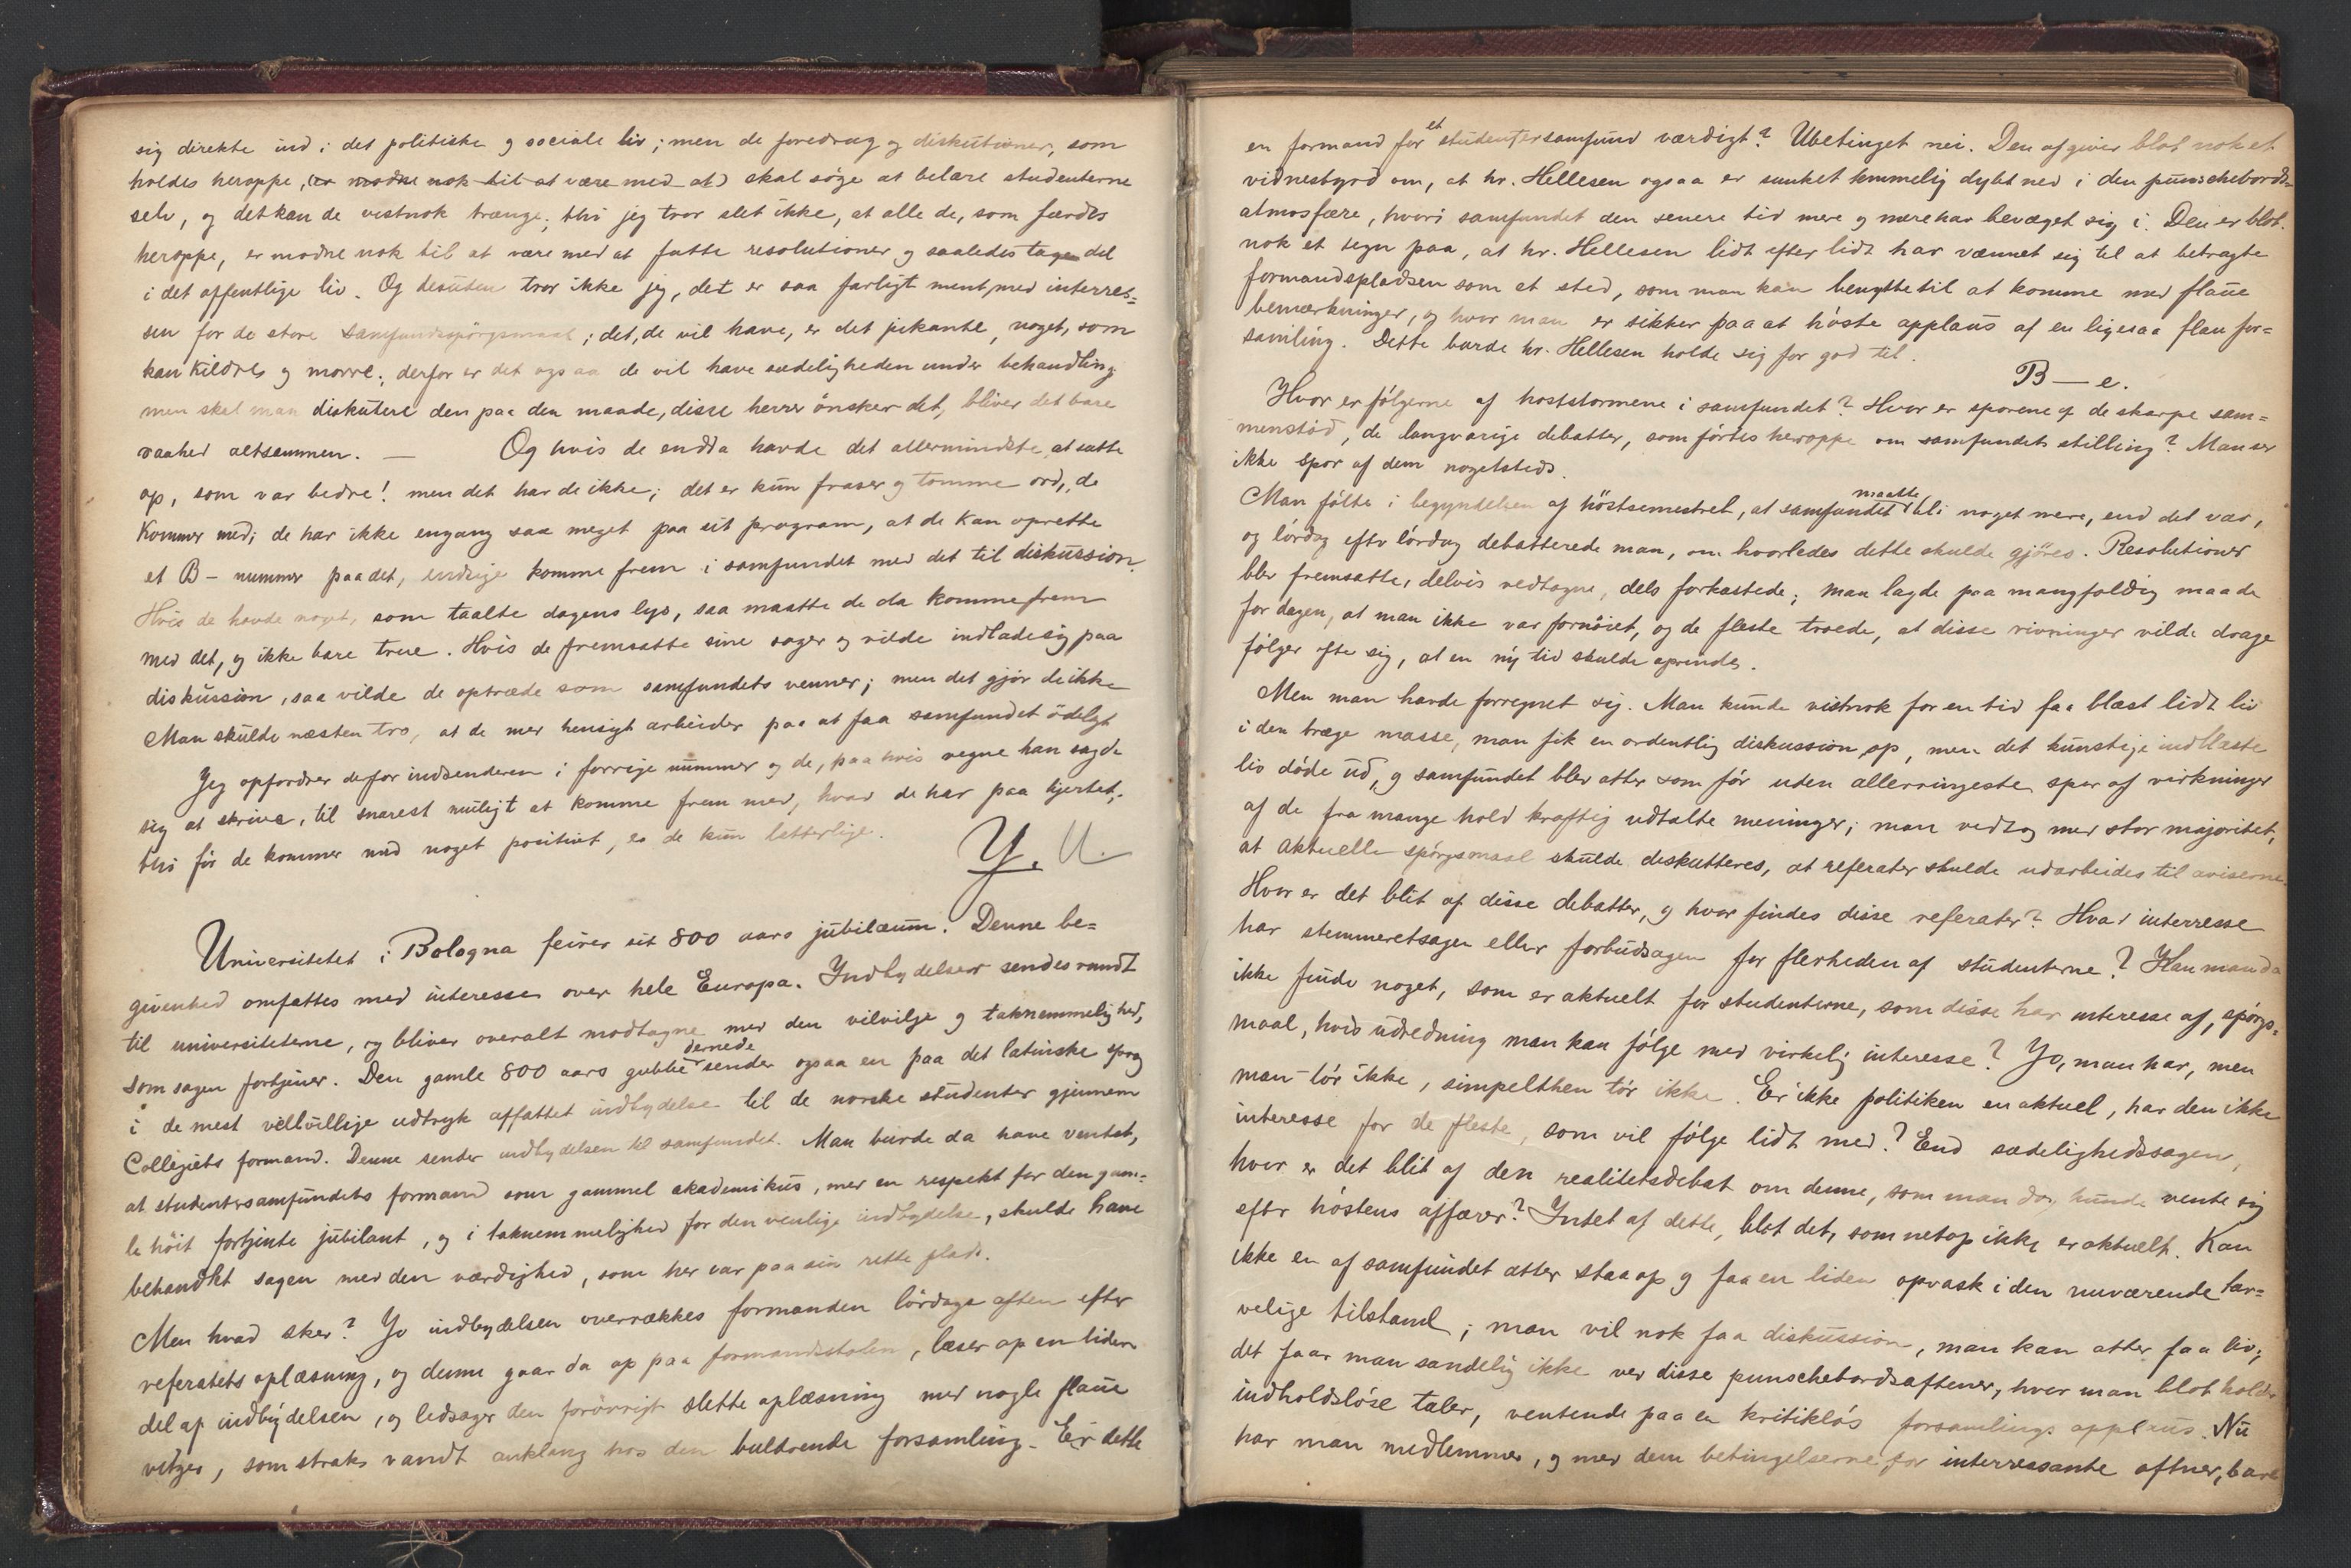 sig direkte ind i det politiske og sociale liv; men de foredrag og diskutioner, som
holdes heroppe, (er modne nok til at være med at) skal søge at belære studenterne
selv, og det kan de vistnok trænge; thi jeg tror slet ikke, at alle de, som færdes
heroppe, er modne nok til at være med at fatte resolutioner og saaledes tage del
i det offentlige liv. Og desuden tror ikke jeg, det er saa farligt ment, med interres=
sen for de store samfundsspörgsmaal; det, de vil have, er det pikante, noget, som
kan kildres og morre; derfor er det ogsaa de vil have sædeligheden under behandling
men skal man diskutere den paa den maade, disse herrer önsker det, bliver det bare
raahed altsammen. — Og hvis de endda havde det allermindste at sætte
op, som var bedre! men det har de ikke; det er kun fraser og tomme ord, de
kommer med; de har ikke engang saa meget paa sit program, at de kan oprette
et B- nummer paa det, endsige komme frem i samfundet med det til diskussion.
Hvis de havde noget, som taalte dagens lys, saa maatte de da komme frem
med det, og ikke bare true. Hvis de fremsatte sine sager og vilde indlade sig paa
diskussion, saa vilde de optræde som samfundets venner; men det gjör de ikke
Man skulde næsten tro, at de med hensigt arbeider paa at faa samfundet ödelagt
Jeg opfordrer derfor indsenderen i forrige nummer og de, paa hvis vegne han sagde
sig at skrive, til snarest muligt at komme frem med, hvad de har paa hjertet;
thi för de kommer med noget positivt, er de kun latterlige.
Y. U.
Universitetet i Bologna feirer sit 800 aars jubilæum. Denne be=
givenhed omfattes med interesse over hele Europa. Indbydelser sendes rundt
til universiteterne, og bliver overalt modtagne med den velvilje og taknemmelighed,
som sagen fortjener. Den gamle 800 aars gubbe dernede sender ogsaa en paa det latinske sprog
i de mest velvillige udtryk affattet indbydelse til de norske studenter gjennem
Collegiets formand. Denne sender indbydelsen til samfundet. Man burde da have ventet,
at studentersamfundets formand som gammel akademikus, med en respekt for den gam=
le höit fortjente jubilant, og i taknemmelighed for den venlige indbydelse, skulde have
behandlet sagen med den værdighed, som her var paa sin rette plads.
Men hvad sker? Jo indbydelsen overrækkes formanden lördags aften efter
referatets oplæsning, og denne gaar da op paa formandsstolen, læser op en liden
del af indbydelsen, og ledsager den forövrigt slette oplæsning med nogle flaue
vitzer, som straks vandt anklang hos den buldrende forsamling. Er dette
en formand for et studentersamfund værdigt? Ubetinget nei. Den afgiver blot nok et
vidnesbyrd om, at hr. Hellesen ogsaa er sunket temmelig dybt ned i den punschebords=
atmosfære, hvori samfundet den senere tid mere og mere har bevæget sig i. Den er blot
nok et tegn paa, at hr. Hellesen lidt efter lidt har vænnet sig til at betragte
formandspladsen som et sted, som man kan benytte til at komme med flaue
bemærkninger, og hvor man er sikker paa at höste applaus af en ligesaa flau for=
samling. Dette burde hr. Hellesen holde sig for god til.
B—e.
Hvor er fölgerne af höststormene i samfundet? Hvor er sporene af de skarpe sam=
menstöd, de langvarige debatter, som förtes heroppe om samfundets stilling? Man ser
ikke spor af dem nogetsteds.
Man fölte i begyndelsen af höstsemestret, at samfundet maatte bli noget mere, end det var,
og lördag efter lördag debatterede man, om hvorledes dette skulde gjöres. Resolutioner
blev fremsatte, delvis vedtagne, dels forkastede; man lagde paa mangfoldig maade
for dagen, at man ikke var fornöiet, og de fleste troede, at disse rivninger vilde drage
fölger efter sig, at en ny tid skulde oprinde.
Men man havde forregnet sig. Man kunde vistnok for en tid faa blæst lidt liv
i den træge masse, man fik en ordentlig diskussion op, men det kunstige indblæste
liv döde ud, og samfundet blev atter som för uden allerringeste spor af virkninger
af de fra mange hold kraftig udtalte meninger; man vedtog med stor majoritet,
at aktuelle spörgsmaal skulde diskutteres, at referater skulde udarbeides til aviserne.
Hvor er det blit af disse debatter, og hvor findes disse referater? Hvad interresse
har stemmeretsagen eller forbudsagen for flerheden af studenterne? Kan man da
ikke finde noget, som er aktuelt for studenterne, som disse har interesse af, spörgs=
maal, hvis udredning man kan fölge med virkelig interesse? Jo, man har, men
man tör ikke, simpelthen tör ikke. Er ikke politiken en aktuel, har den ikke
interesse for de fleste, som vil fölge lidt med? End sædelighedssagen,
hvor er det blit af den realitetsdebat om denne, som man dog kunde vente sig
efter höstens affærer? Intet af dette, blot det, som netop ikke er aktuelt. Kan
ikke en af samfundet atter staa op og faa en liden opvask i den nuværende tar=
velige tilstand; man vil nok faa diskussion, man kan atter faa liv;
det faar man sandelig ikke ved disse punschebordsaftener, hvor man blot holder
indholdslöse taler, ventende paa en kritiklös forsamlings applaus. Nu
har man medlemmer, og med dem betingelserne for interressante aftner, bare